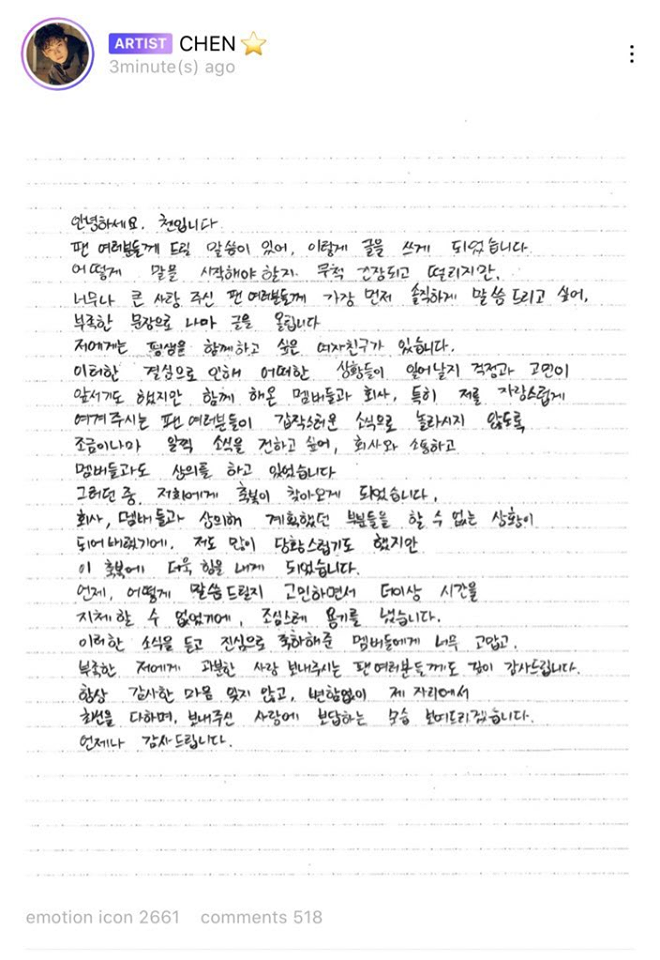 ARTIST CHEN
3minute(s) ago
안녕하세요. 첸입니다
팬 여러분들께 드릴 말씀이 있어, 이렇게 글을 쓰게 되었습니다
어떻게 말을 시작해야 할지. 무척 긴장되고 떨리지만,
너무나 큰 사랑 주신 팬 여러분들께 가장 먼저 솔직하게 말씀 드리고 싶어,
부족한 문장으로 나마 글을 올립니다
저에게는 평생을 함께하고 싶은 여자친구가 있습니다.
이러한 결심으로 인해 어떠한 상황들이 일어날지 걱정과 고민이
앞서기도 했지만 함께 해온 멤버들과 회사, 특히 저를 자랑스럽게
여겨주시는 팬 여러분들이 갑작스러운 소식으로 놀라시지 않도록
조금이나마 일찍 소식을 전하고 싶어, 회사와 소통하고
멤버들과도 상의를 하고 있었습니다
그러던 중, 저희에게 축복이 찾아오게 되었습니다.
회사, 멤버들과 상의해 계획했던 부분들을 할 수 없는 상황이
되어버렸기에, 저도 많이 당황스럽기도 했지만
이 축복에 더욱 힘을 내게 되었습니다.
언제, 어떻게 말씀드릴지 고민하면서 더이상 시간을
지체할 수 없었기에, 조심스레 용기를 냈습니다.
이러한 소식을 듣고 진심으로 축하해준 멤버들에게 너무 고맙고,
부족한 저에게 과분한 사랑 보내주시는 팬 여러분들께도 깊이 감사드립니다.
항상 감사한 마음 잊지 않고, 변함없이 제 자리에서
최선을 다하며, 보내주신 사랑에 보답하는 모습 보여드리겠습니다.
언제나 감사드립니다.
emotion icon 2661 comments 518